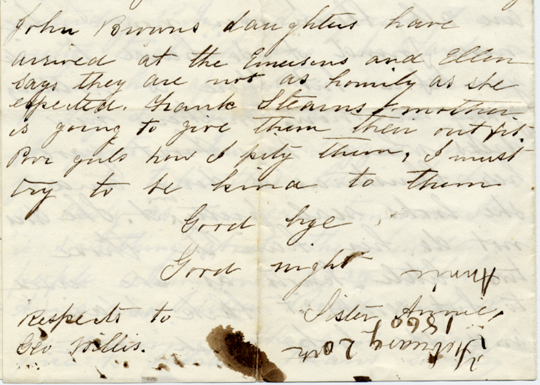 John Browns daughters have
arrived at the Emersons and Ellen
says they are not as homily as she
expected. Frank Stearns & mother
is going to give them their out fit.
Por girls how I pity them, I must
try to be kind to them
Good bye
Good night
Annie
Respects to
Sister Annie,
Geo Willis.
February 20th
1860